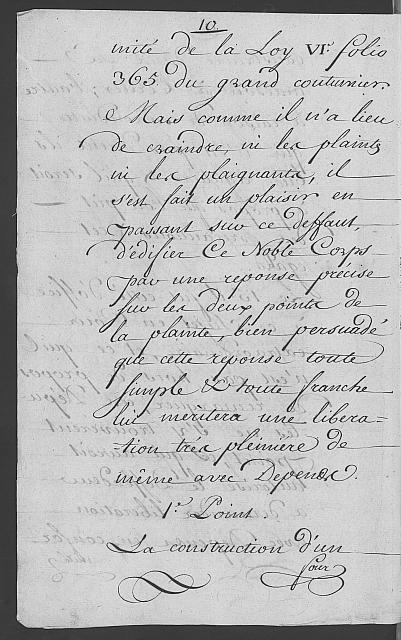 10.
mité de la Loy VI.e folio
365 du grand coutumier.
Mais comme il n'a lieu
de craindre, ni les plaints
ni les plaignants, il
s'est fait un plaisir en
passant sur ce deffaut,
d'édifier Ce Noble Corps
par une reponse précise
sur les deux points de
la plainte, bien persuadé
que cette reponse toute
simple & toute franche
lui meritera une libera=
tion trés pleiniere de
même avec Depends.
1.r Point.
La construction d'un
four